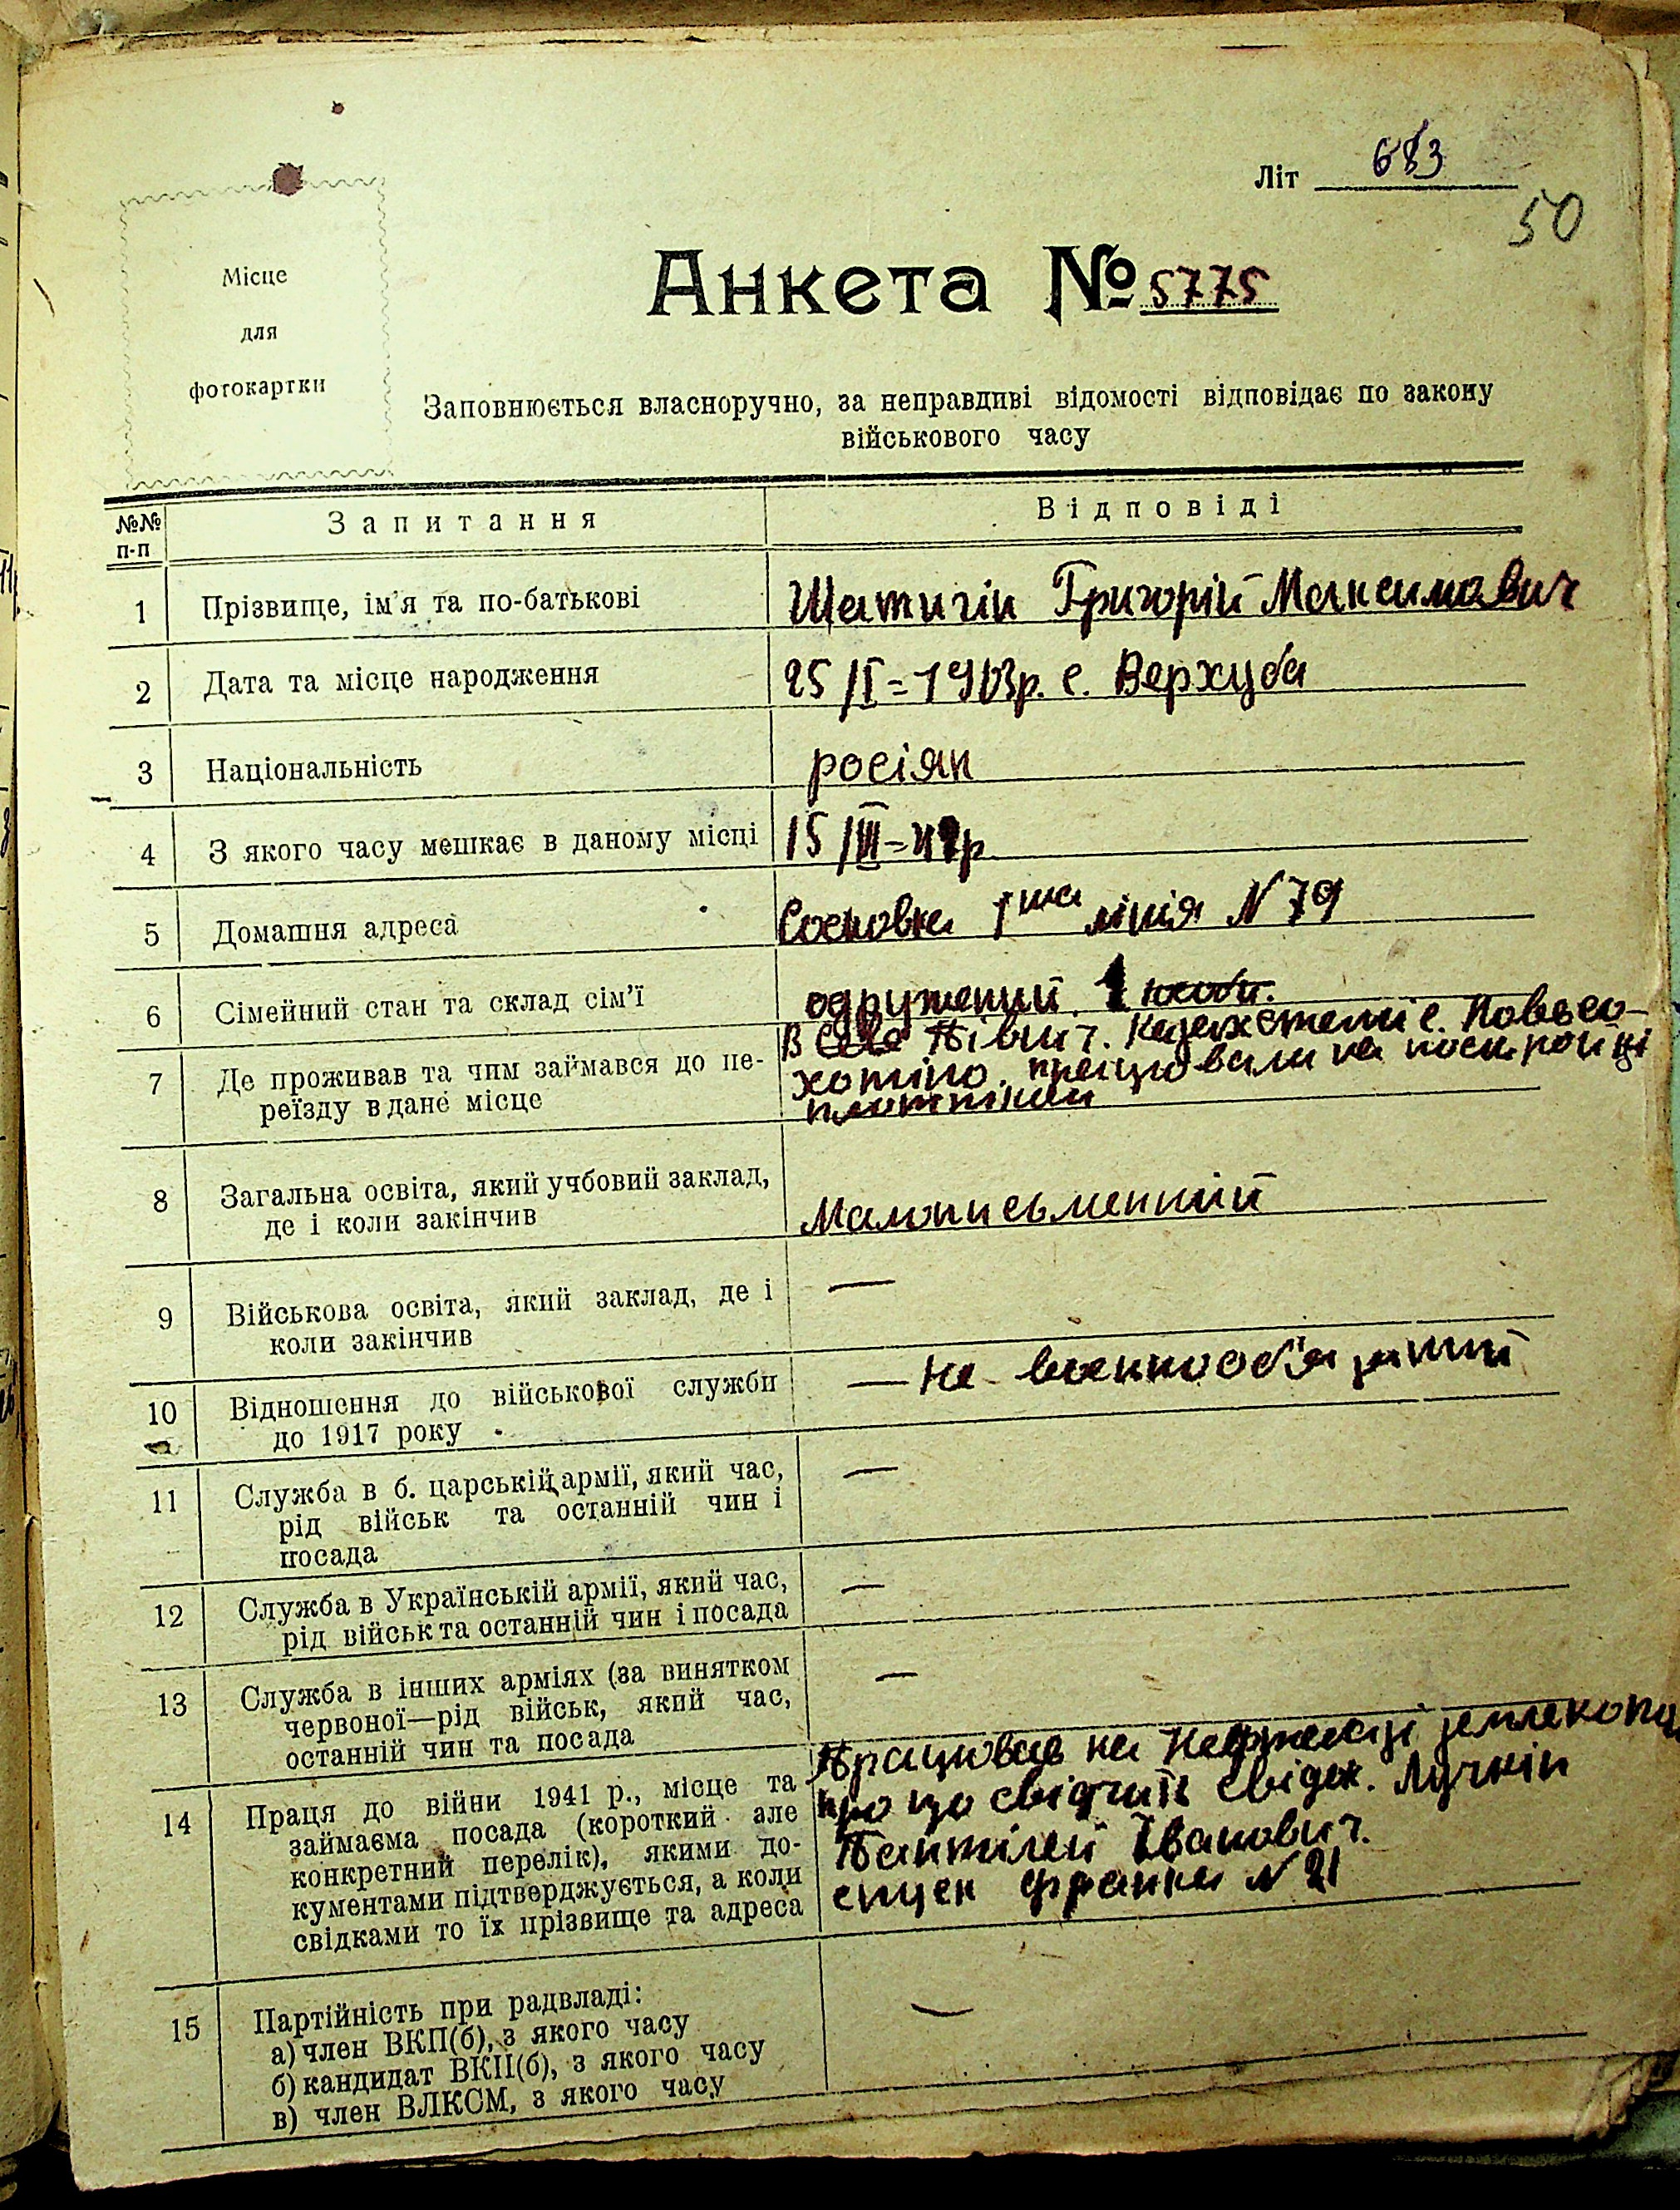 Літ 683
50
Місце
для
фотокартки
Анкета № 5775
Заповнюється власноручно, за неправдиві відомості відповідає по закону
військового часу
№№ п-п
Запитання
Відповіді
1 Прізвище, ім'я та по-батькові
Шатигін Григорій Максимович
2 Дата та місце народження
25/I=1903р. с. Верхуба
3 Національність
росіян
4 З якого часу мешкає в даному місці
15/III-42р.
5 Домашня адреса
Сосновка 1ша лінія N 79
6 Сімейний стан та склад сім'ї
одружений. 1
7 Де проживав та чим займався до пе-
реїзду в дане місце
В Північ. Казахстані с.
працювали на постройці
плотніком
8 Загальна освіта, який учбовий заклад,
де і коли закінчив
Малописьменний
9 Військова освіта, який заклад, де і
коли закінчив
—
10 Відношення до військової служби
до 1917 року
— Не военнооб'язаний
11 Служба в б. царській армії, який час,
рід військ та останній чин і
посада
—
12 Служба в Українській армії, який час,
рід військ та останній чин і посада
—
13 Служба в інших арміях (за винятком
червоної—рід військ, який час,
останній чин та посада
—
14 Праця до війни 1941 р., місце та
займаєма посада (короткий але
конкретний перелік), якими до-
кументами підтверджується, а коли
свідками то їх прізвище та адреса
Працював на землекопом
про що свідчить свідок. Лучкін
Пантілей Іванович.
Франка N 21
15 Партійність при радвладі:
а) член ВКП(б), з якого часу
б) кандидат ВКП(б), з якого часу
в) член ВЛКСМ, з якого часу
—